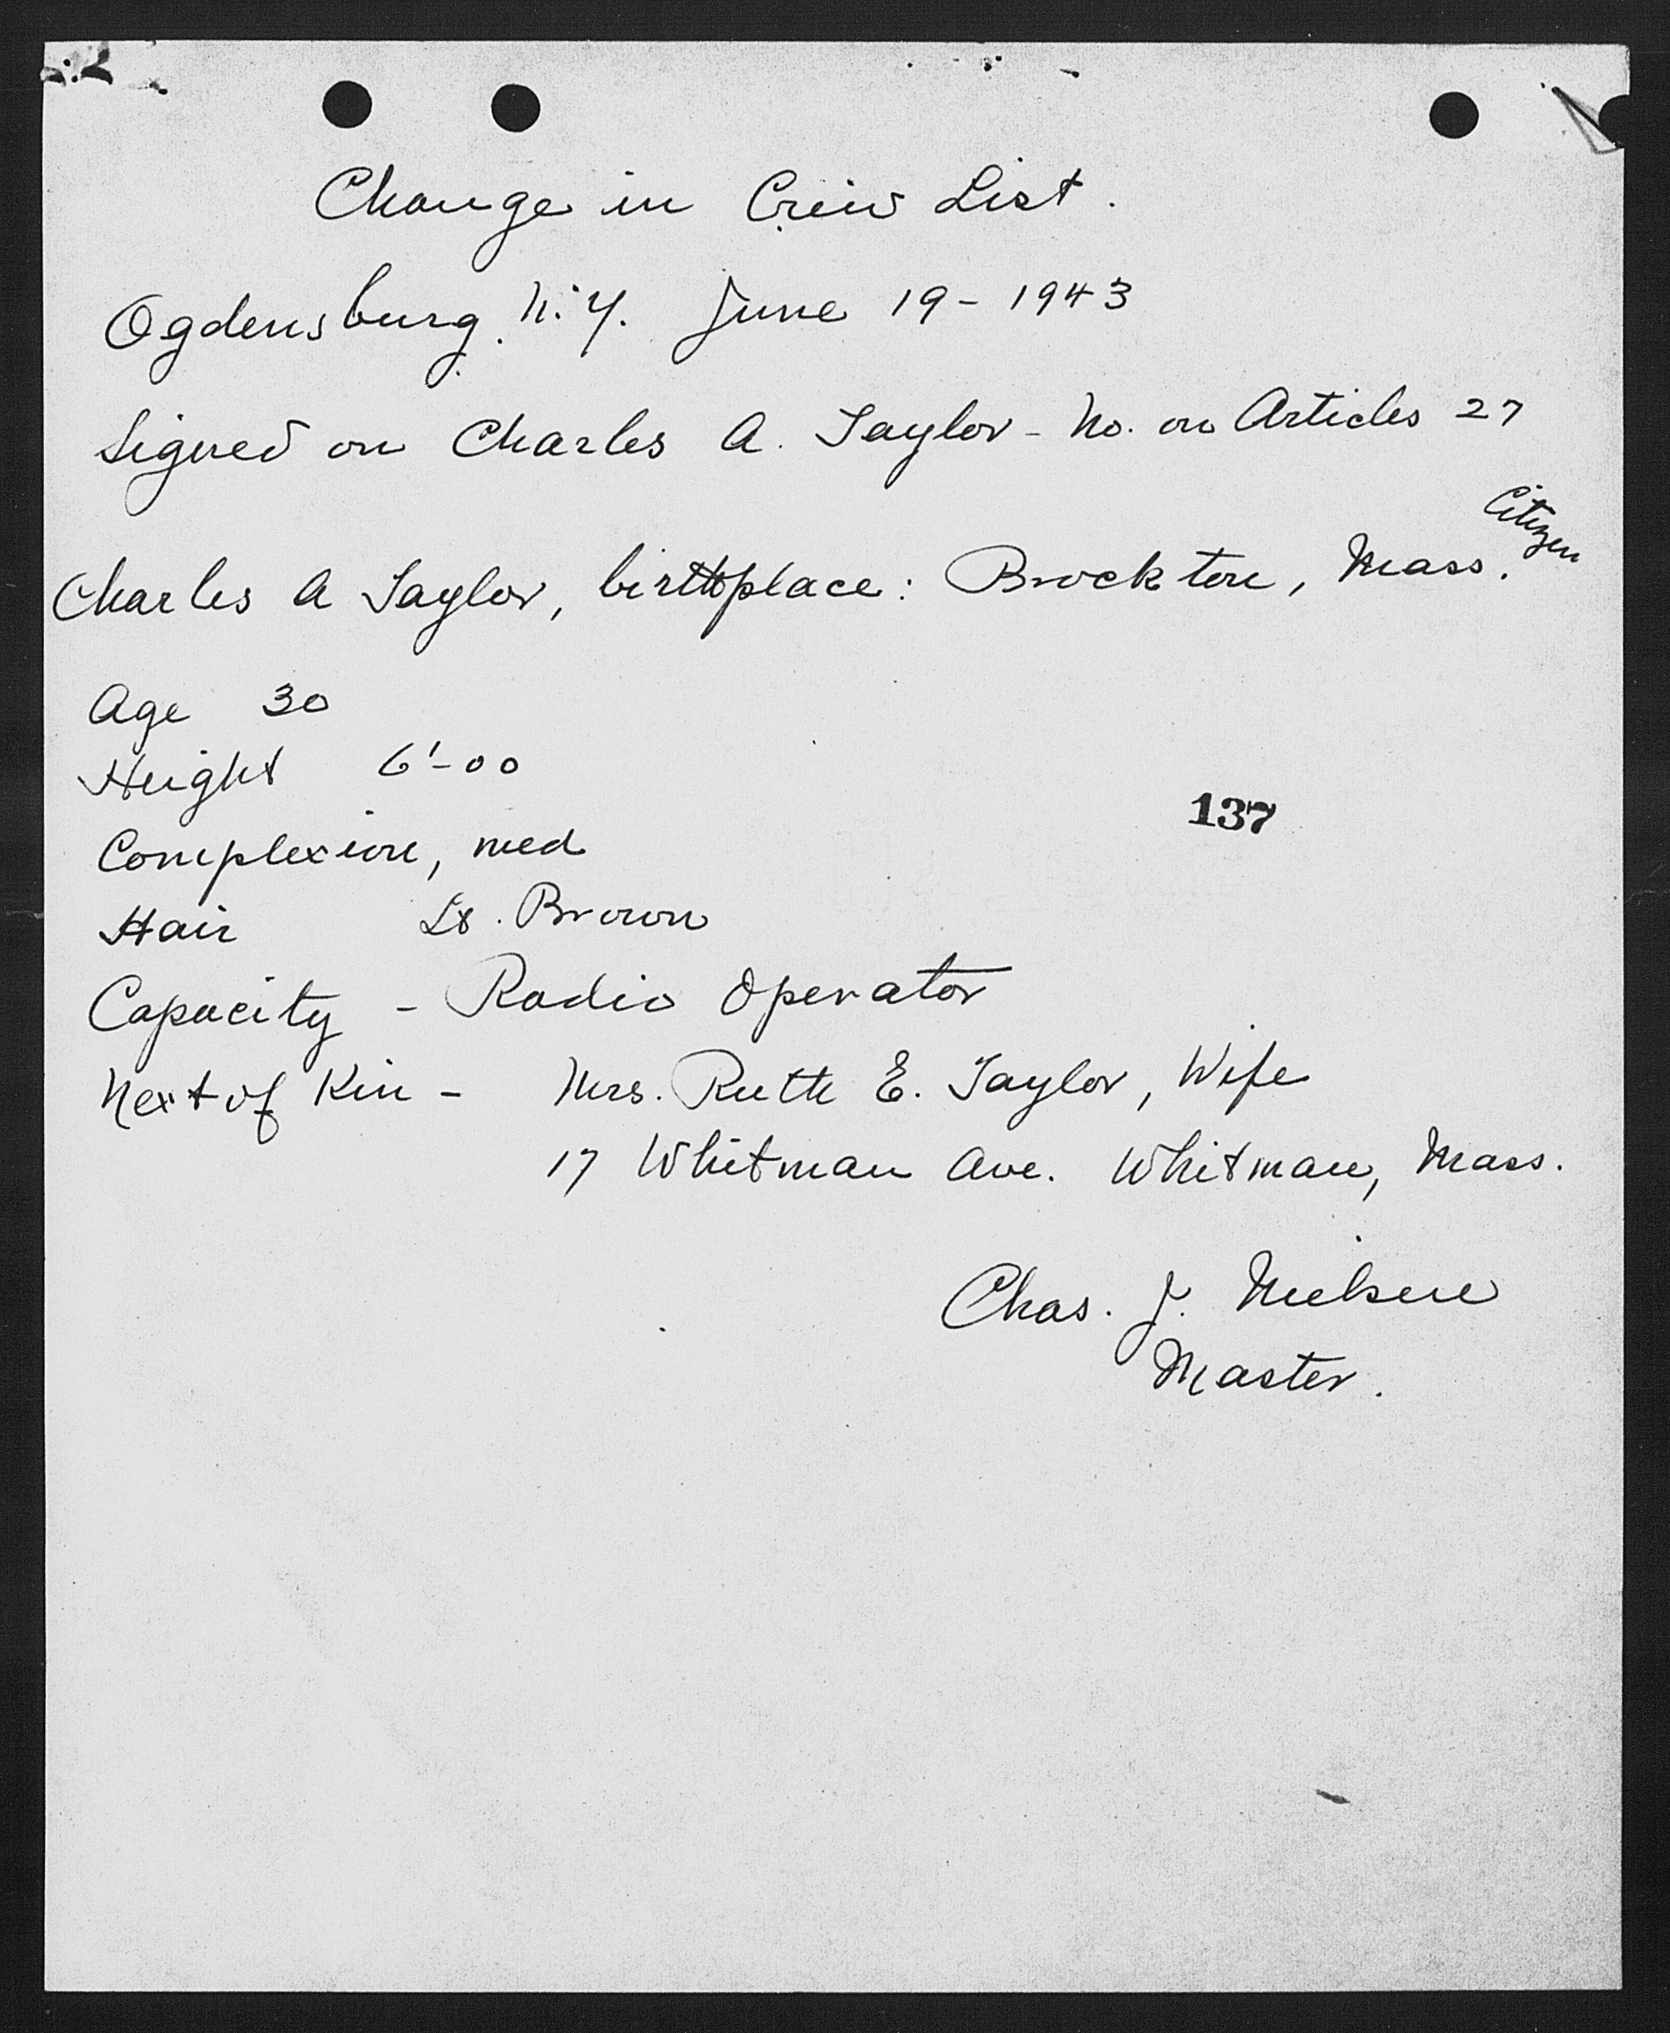 Change in Crew List.
Ogdensburg. N.Y. June 19 - 1943
Signed on Charles A. Taylor - No. on Articles 27
Citizen
Charles A Taylor, birthplace: Brockton, Mass.
Age 30
Height 6'-00
137
Complexion, med
Hair Lt. Brown
Capacity - Radio Operator
Next of Kin - Mrs. Ruth E. Taylor, Wife
17 Whitman Ave. Whitman, Mass.
Chas. J. Nielsen
Master.